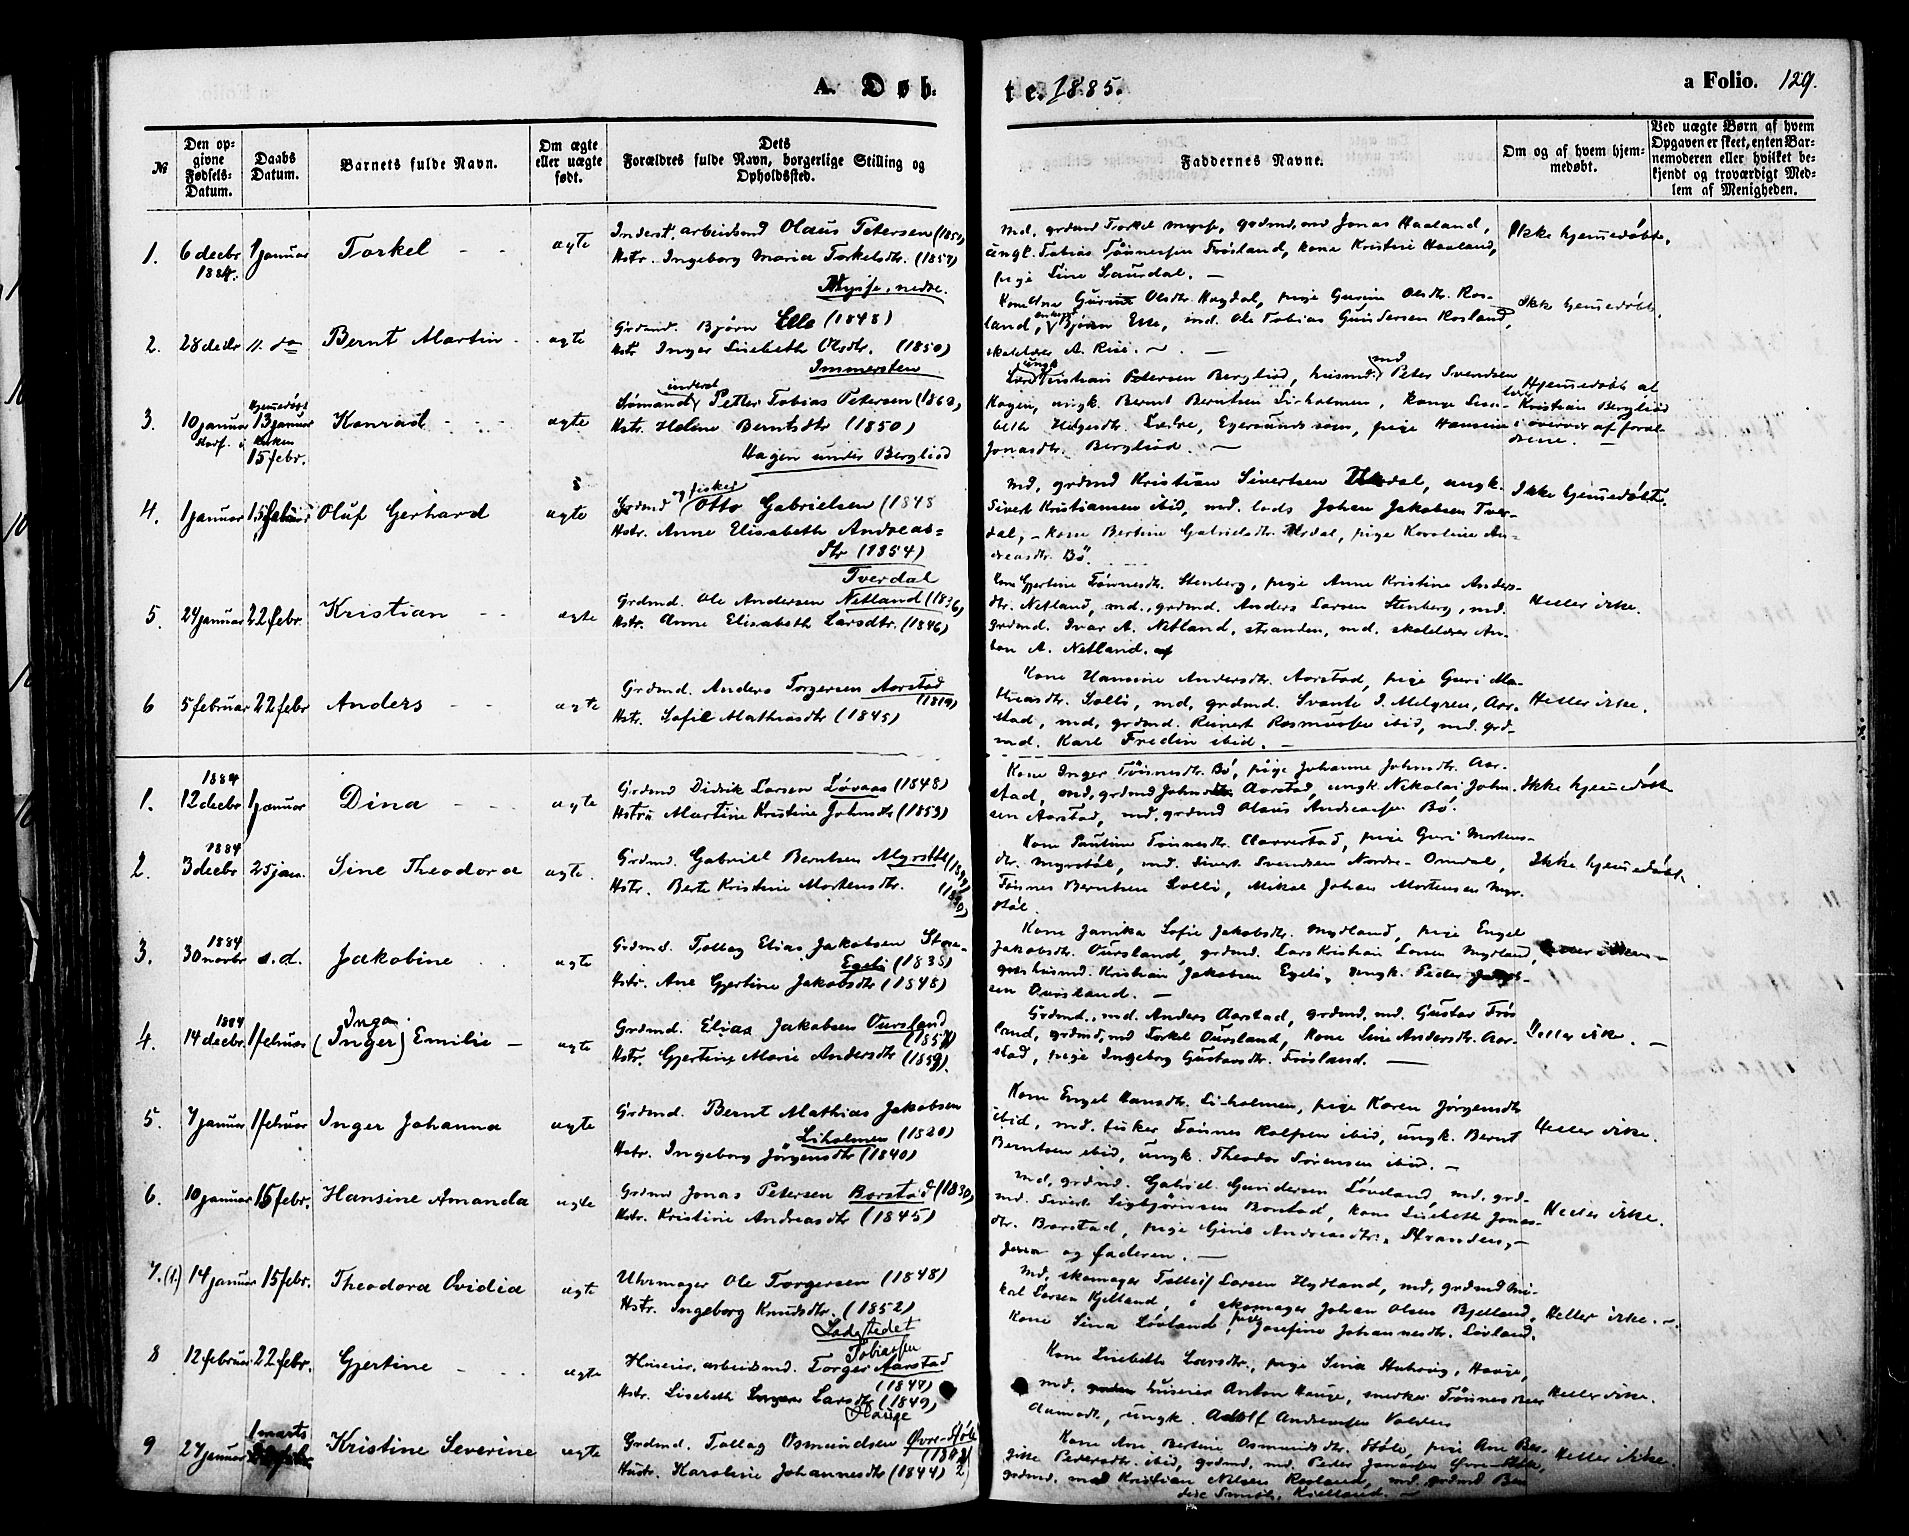 A. Døb-
te. 1885.
a Folio. 129.
№
Den op-
givne
Fødsels-
Datum.
Daabs
Datum.
Barnets fulde Navn.
Om ægte
eller uægte
født.
Dets
Forældres fulde Navn, borgerlige Stilling og
Opholdssted.
Faddernes Navne.
Om og af hvem hjem-
medøbt.
Ved uægte Børn af hvem
Opgaven er skeet, enten Bar-
nemoderen eller hvilket be-
kjendt og troværdigt Med-
lem af Menigheden.
1. 6 decbr 1884 1 januar Torkel ægte
Inderst, arbeidsmd Olaus Petersen
Hstr. Ingeborg Maria Torkelsdtr. (1857)
Mysse, nedre.
md, grdmd Torkel Mysse, grdmd, md Jonas Haaland,
ungk. Tobias Tønnessen Frøsland, kone Kristine Haaland,
pige Sine Saurdal.
Ikke hjemedøbt.
2. 28 decbr 11. do Bernt Martin ægte
Grdmd. Bjørn Elle (1848)
Hstr Inger Lisebeth Olsdtr. (1850)
Immersten
Olsdtr. Hagdal, pige Gurine Olsdtr. Ros-
land, Bjørn Elle, md. Ole Tobias Gundersen Rosland,
skolelærer A. Riis.
Ikke hjemedøbt.
3. 10 januar hjemedøbt 13 januar Kirken 15 febr. Konrad ægte
Sømand, inderst Petter Tobias Petersen (1860,
Hstr. Helene Berntsdtr (1850)
Hagen under Bergliød
Kristian Petersen Bergliød, husmd. md Peter Svendsen
Hagen, ungk. Bernt Berntsen Liholmen, kone Lise-
beth Helgesdtr. Egersunds sogn, pige Hansine
Jonasdtr. Bergliød.
Hjemedøbt af
Kristian Bergliød
i overvær af foræl-
drene.
4. 1 januar 15 februar Oluf Gerhard ægte
Grdmd og fisker Otto Gabrielsen (1848
Hstr. Anne Elisabeth Andreas-
dtr (1854)
Tverdal
md, grdmd Kristian Sivertsen Urdal, ungk.
Sivert Kristiansen ibid, md. lods Johan Jakobsen Tver-
dal, kone Bertine Gabrielsdtr. Urdal, pige Karoline An-
dreasdtr. Bø.
Ikke hjemedøbt.
5. 24 januar 22 febr. Kristian ægte
Grdmd. Ole Andersen Netland (1836)
Hstr. Anne Elisabeth Larsdtr. (1846)
kone Gjertine Tønnesdtr. Stenberg, pige Anne Kristine Anders-
dtr. Netland, md., grdmd. Anders Larsen Stenberg, md.
grdmd. Ivar A. Netland, stranden, md. skolelærer An-
ton A. Netland.
Heller ikke.
6 5 februar 22 febr Anders ægte
Grdmd. Anders Torgersen Aarstad
(1819)
Hstr. Sofie Mathiasdtr (1845)
Kone Hansine Andersdtr. Aarstad, pige Guri Ma-
thiasdtr. Solli, md, grdmd. Svante I. Melgren, Aar-
stad, md, grdmd. Reinert Rasmussen ibid, md. grd-
md. Karl Fredin ibid.
Heller ikke.
1. 1884 12 decbr 1 januar Dina ægte
Grdmd Didrik Larsen Løvaas (1848)
Hstru Martine Kristine Johnsdtr (1859)
Kone Inger Tønnesdtr. Bø, pige Johanne Johnsdtr. Aar-
stad, md, grdmd John Aarstad, ungk. Nikolai John-
sen Aarstad, md. grdmd Olaus Andreassen Bø.
Ikke hjemedøbt
2. 1884 3 decbr 25 jan. Sine Theodora ægte.
Grdmd. Gabriel Berntsen Myrstøl
Hstr. Berte Kristine Mortensdtr.
Kone Pauline Tønnesdtr. Aarrestad, pige Guri Mortens-
dtr. Myrstøl, md. Sivert Svendsen Nordre-Omdal,
Tønnes Berntsen Solli, Mikal Johan Mortensen Myr-
støl.
Ikke hjemedøbt.
3. 1884 30 novbr s.d. Jakobine ægte
Grdmd. Tollag Elias Jakobsen Store-
Egeli (1838)
Hstr. Ane Gjertine Jakobsdtr (1848)
Kone Janika Sofie Jakobsdtr. Mydland, pige Engel
Jakobsdtr. Oursland, grdmd. Lars Kristian Larsen Mydland,
husmd. Kristian Jakobsen Egeli, ungk. Peder Jakob-
sen Oursland.
4. 1884 14 decbr 1 februar Inga (Inger) Emilie ægte
Grdmd. Elias Jakobsen Oursland
(1857)
Hstr. Gjertine Marie Andersdtr (1859).
Grdmd., md. Anders Aarstad, grdmd, md. Gustav Frøs-
land, grdmd, md Torkel Oursland, Kone Sine Andersdtr. Aar-
stad, pige Ingeborg Gustavsdtr. Frøsland.
Heller ikke.
5. 7 januar 1 februar Inger Johanna ægte
Grdmd. Bernt Mathias Jakobsen
Liholmen (1820)
Hstr. Ingeborg Jørgensdtr (1840)
Kone Engel Hansdtr. Liholmen, pige Karen Jørgensdtr
ibid, md. fisker Tønnes Rolfsen ibid, ungk. Bernt
Berntsen ibid, ungk. Theodor Sørensen ibid.
Heller ikke.
6. 10 januar 15 febr. Hansine Amanda ægte
Grdmd Jonas Petersen Barstad (1830)
Hstr. Kristine Andreasdtr (1845)
md, grdmd. Gabriel Gundersen Løvland, md. grd-
md. Sivert Sigbjørnsen Barstad, kone Lisebeth Jonas-
dtr. Barstad, pige Gine Andreasdtr., Stranden,
og faderen.
Heller ikke.
7. (1.) 14 januar 15 febr. Theodora Ovidia ægte
Uhrmager Ole Torgersen (1848)
Hstr. Ingeborg Knudsdtr. (1852)
Ladestedet
md, skomager Tollef Larsen Hydland, md, grdmd Mi-
kal Larsen Kjelland, skomager Johan Olsen Bjelland,
Kone Sina Løvland, pige Josefine Johannesdtr. Løvland.
Heller ikke.
8 12 februar 22 febr. Gjertine ægte
Huseier, arbeidsmd. Torger Tobiassen Aarstad
(1847)
Hstr. Lisebeth Larsdtr (1849)
Hauge
Kone Lisebeth Larsdtr., pige Sina Hauge,
md, huseier Anton Hauge, snedker Tønnes
Aamodt, ungk. Adolf Andreassen
Heller ikke.
9 27 januar 1 marts Kristine Severine ægte
Grdmd. Tollag Osmundsen Øvre-Støle
Hustr. Karoline Johannesdtr (1844)
Kone Ane Bertine Osmundsdtr. Støle, pige Ane Ber-
gitte Pedersdtr. ibid, grdmd. md. Peder Jonassen Øvre-Støle,
grdmd, md Kristian Nilsen Rosland, md. grdmd Ber-
Kjelland.
Heller ikke.